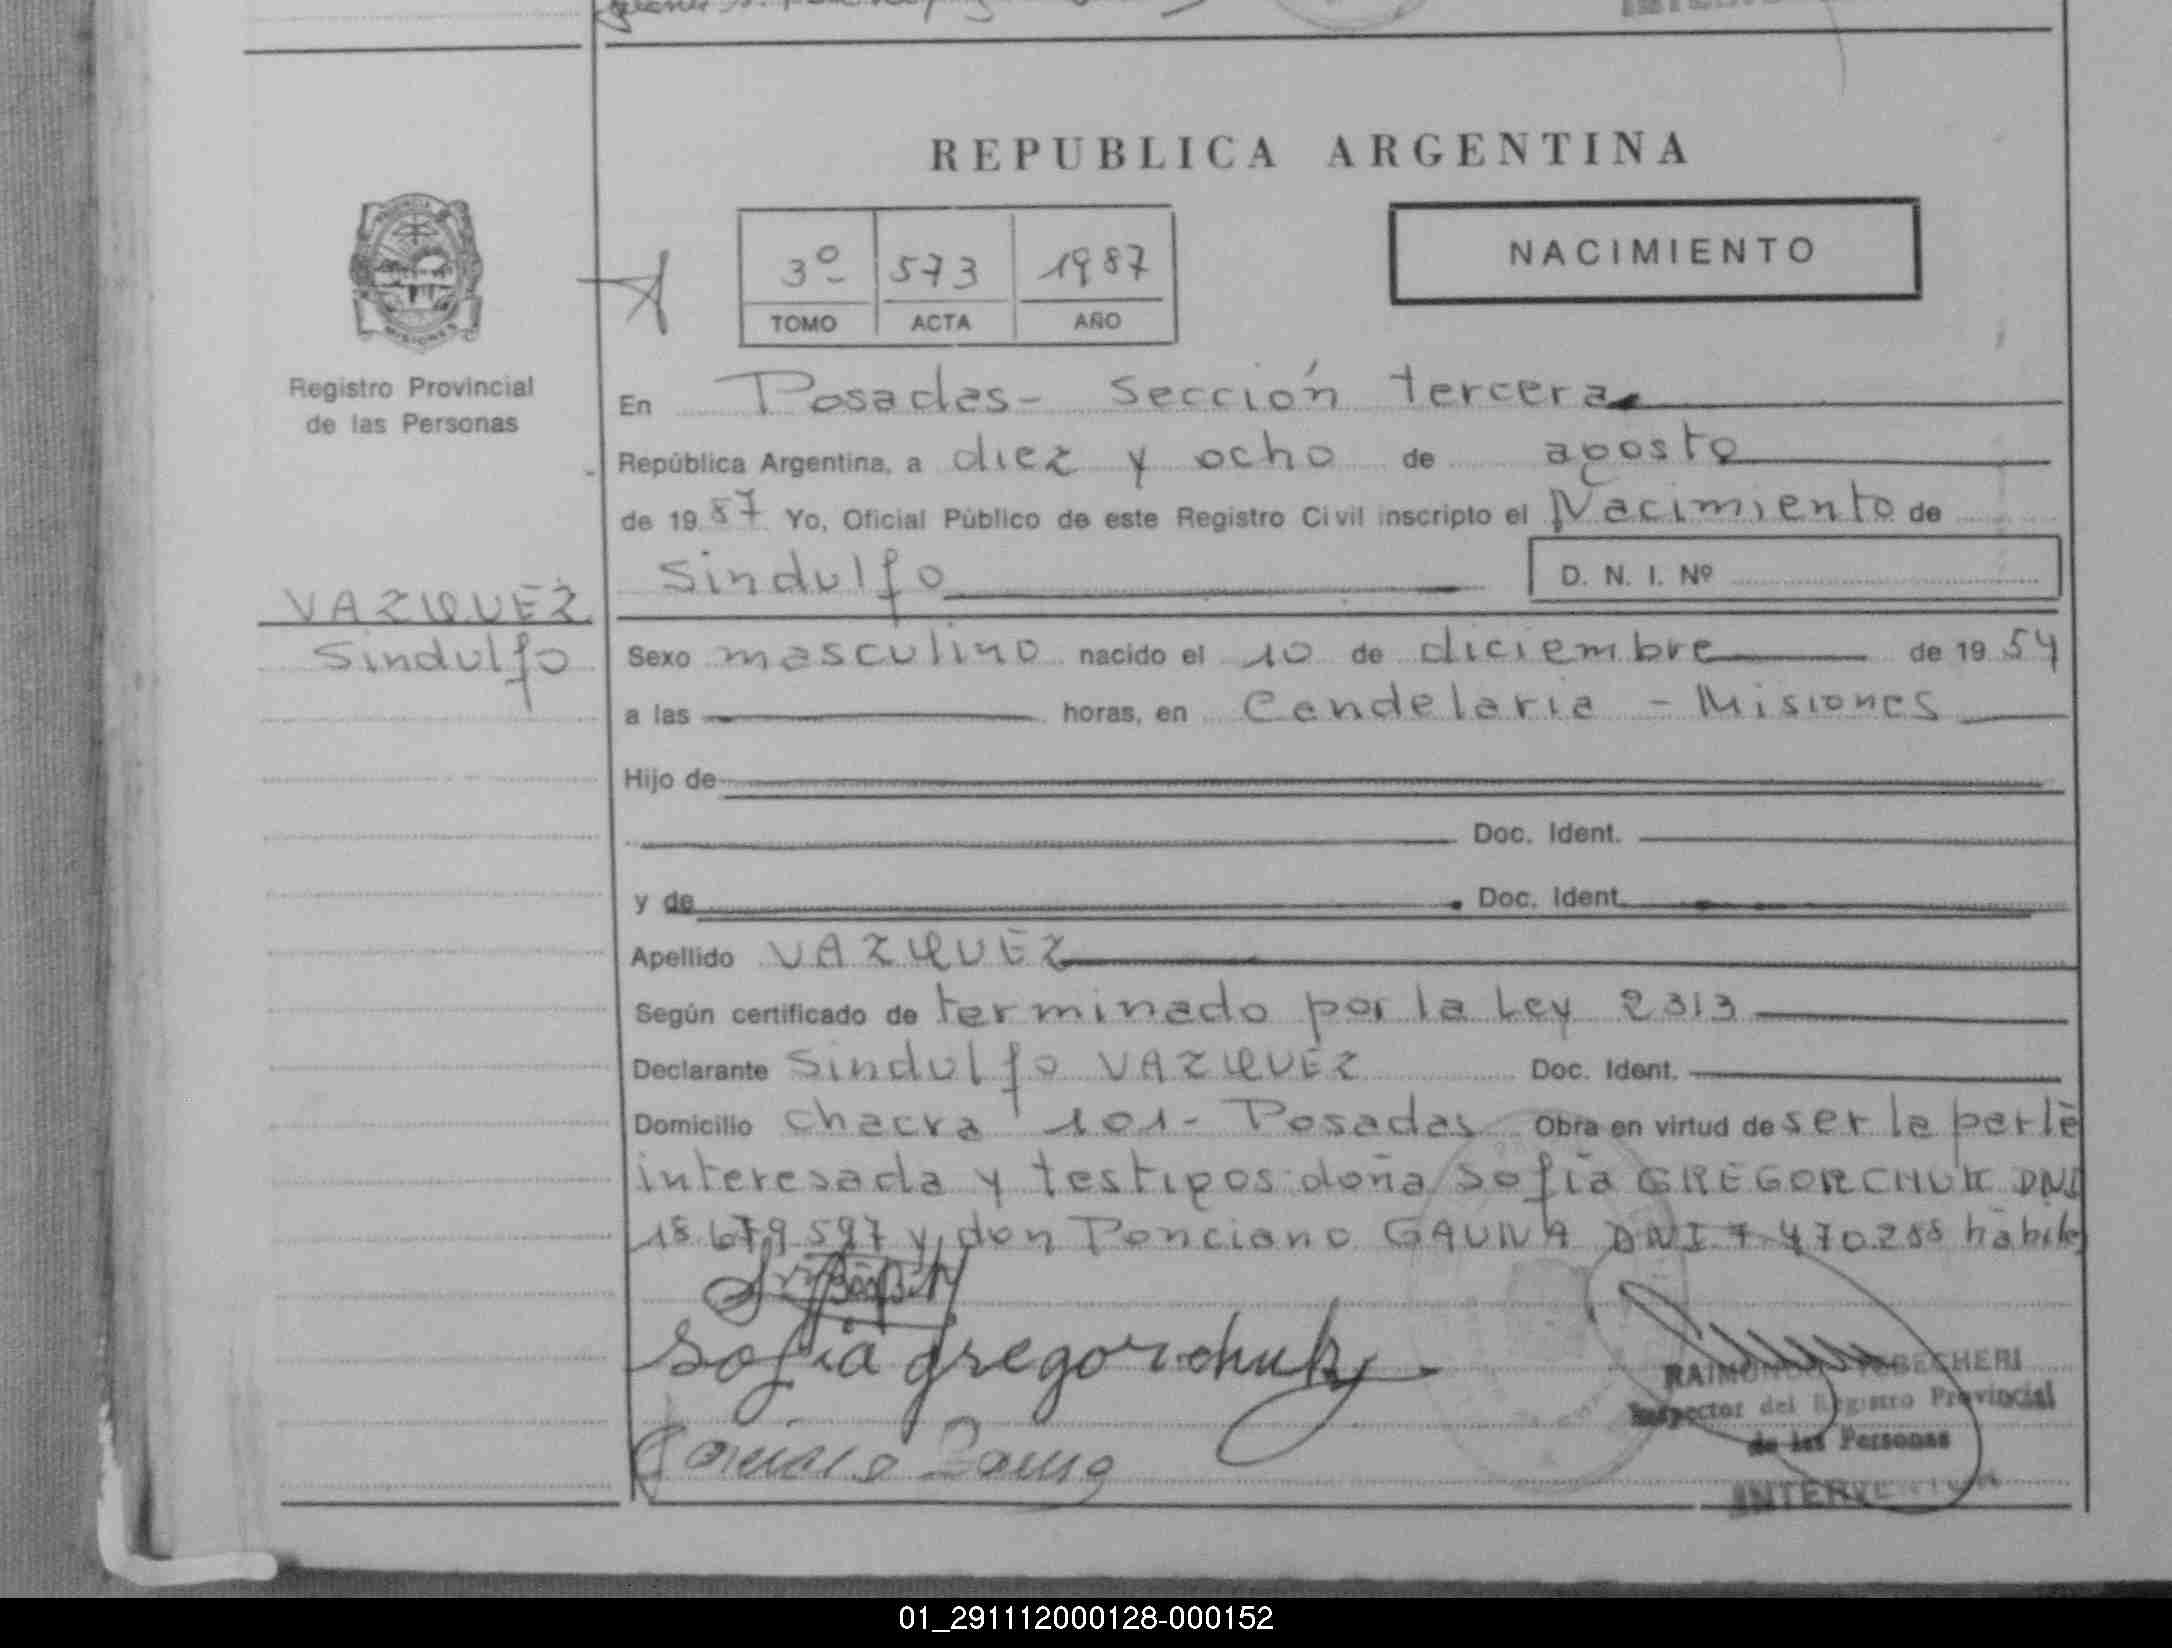 REPUBLICA ARGENTINA
3º 573 1987
TOMO ACTA AÑO
NACIMIENTO
Registro Provincial
de las Personas
En Posadas - Sección tercera
República Argentina, a diez y ocho de agosto
de 1987 Yo, Oficial Público de este Registro Civil inscripto el Nacimiento de
Sindulfo D. N. I. Nº
VAZQUEZ
Sindulfo
Sexo masculino nacido el 10 de diciembre de 1954
a las horas, en Candelaria - Misiones
Hijo de
Doc. Ident.
y de Doc. Ident.
Apellido VAZQUEZ
Según certificado de terminado por la Ley 2313
Declarante Sindulfo VAZQUEZ Doc. Ident.
Domicilio chacra 101 - Posadas Obra en virtud de ser la parte
interesada y testigos: doña Sofía GREGORCHUK DNI
18.679.597 y don Ponciano GAUNA DNI 7.470.288 hábiles
Sofia gregorchuk
RAIMUNDO
Inspector del Registro Provincial
de las Personas
01_291112000128-000152